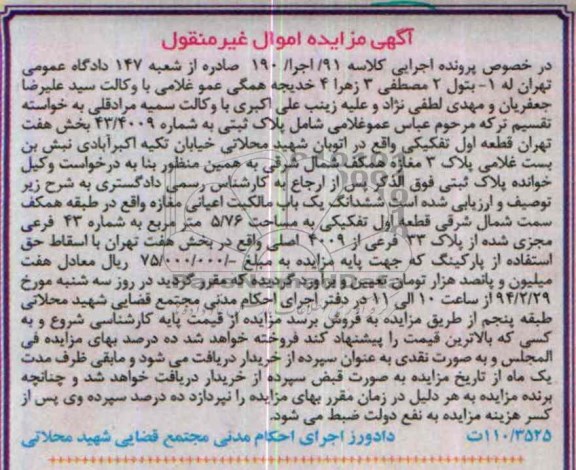 آگهی مزایده اموال غیرمنقول
در خصوص پرونده اجرایی کلاسه ۹۱/ اجرا/ ۱۹۰ صادره از شعبه ۱۴۷ دادگاه عمومی
تهران له ۱- بتول ۲ مصطفی ۳ زهرا ۴ خدیجه همگی عمو غلامی با وکالت سید علیرضا
جعفریان و مهدی لطفی نژاد و علیه زینب علی اکبری با وکالت سمیه مرادقلی به خواسته
تقسیم ترکه مرحوم عباس عموغلامی شامل پلاک ثبتی به شماره ۴۳/۴۰۰۹ بخش هفت
تهران قطعه اول تفکیکی واقع در اتوبان شهید محلاتی خیابان تکیه اکبرآبادی نبش بن
بست غلامی پلاک ۳ مغازه همکف شمال شرقی به همین منظور بنا به درخواست وکیل
خوانده پلاک ثبتی فوق الذکر پس از ارجاع به کارشناس رسمی دادگستری به شرح زیر
توصیف و ارزیابی شده است ششدانگ یک باب مالکیت اعیانی مغازه واقع در طبقه همکف
سمت شمال شرقی قطعه اول تفکیکی به مساحت ۵/۷۶ متر مربع به شماره ۴۳ فرعی
مجزی شده از پلاک ۳۳ فرعی از ۴۰۰۹ اصلی واقع در بخش هفت تهران با اسقاط حق
استفاده از پارکینگ که جهت پایه مزایده به مبلغ -/۷۵/۰۰۰/۰۰۰ ریال معادل هفت
میلیون و پانصد هزار تومان تعیین و برآورد گردیده که مقرر گردید در روز سه شنبه مورخ
۹۴/۲/۲۹ از ساعت ۱۰ الی ۱۱ در دفتر اجرای احکام مدنی مجتمع قضایی شهید محلاتی
طبقه پنجم از طریق مزایده به فروش برسد مزایده از قیمت پایه کارشناسی شروع و به
کسی که بالاترین قیمت را پیشنهاد کند فروخته خواهد شد ده درصد بهای مزایده فی
المجلس و به صورت نقدی به عنوان سپرده از خریدار دریافت می شود و مابقی ظرف مدت
یک ماه از تاریخ مزایده به صورت قبض سپرده از خریدار دریافت خواهد شد و چنانچه
برنده مزایده به هر دلیل در زمان مقرر بهای مزایده را نپردازد ده درصد سپرده وی پس از
کسر هزینه مزایده به نفع دولت ضبط می شود.
۱۱۰/۳۵۲۵ت دادورز اجرای احکام مدنی مجتمع قضایی شهید محلاتی